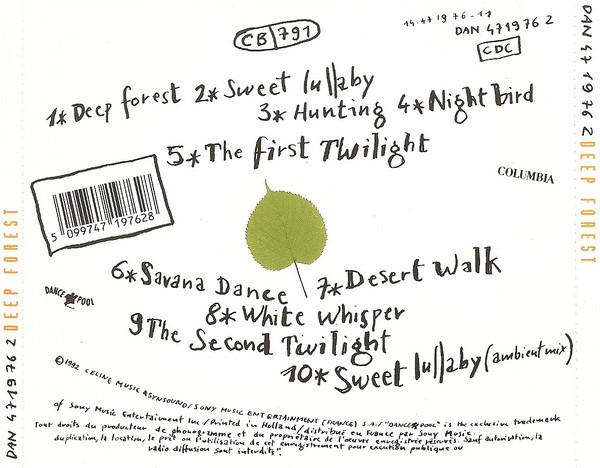 CB 791
14-471976-11
DAN 471976 2
CDC
1* Deep forest 2* Sweet lullaby
3* Hunting 4* Night bird
5* The first Twilight
COLUMBIA
5 099747 197628
6* Savana Dance 7* Desert Walk
DANCE POOL
8* White Whisper
9 The Second Twilight
10* Sweet lullaby (ambient mix)
©1992 CELINE MUSIC & SYNSOUND/SONY MUSIC ENTERTAINMENT (FRANCE) S.A./"DANCE POOL" is the exclusive trademark
of Sony Music Entertainment Inc/Printed in Holland/distribué en France par Sony Music.
Tout droits du producteur de phonogramme et du propriétaire de l'œuvre enregistrée réservés. Sauf autorisation, la
duplication, la location, le prêt ou l'utilisation de cet enregistrement pour exécution publique ou
radio diffusion sont interdits".
DAN 471976 2 DEEP FOREST
DAN 471976 2 DEEP FOREST